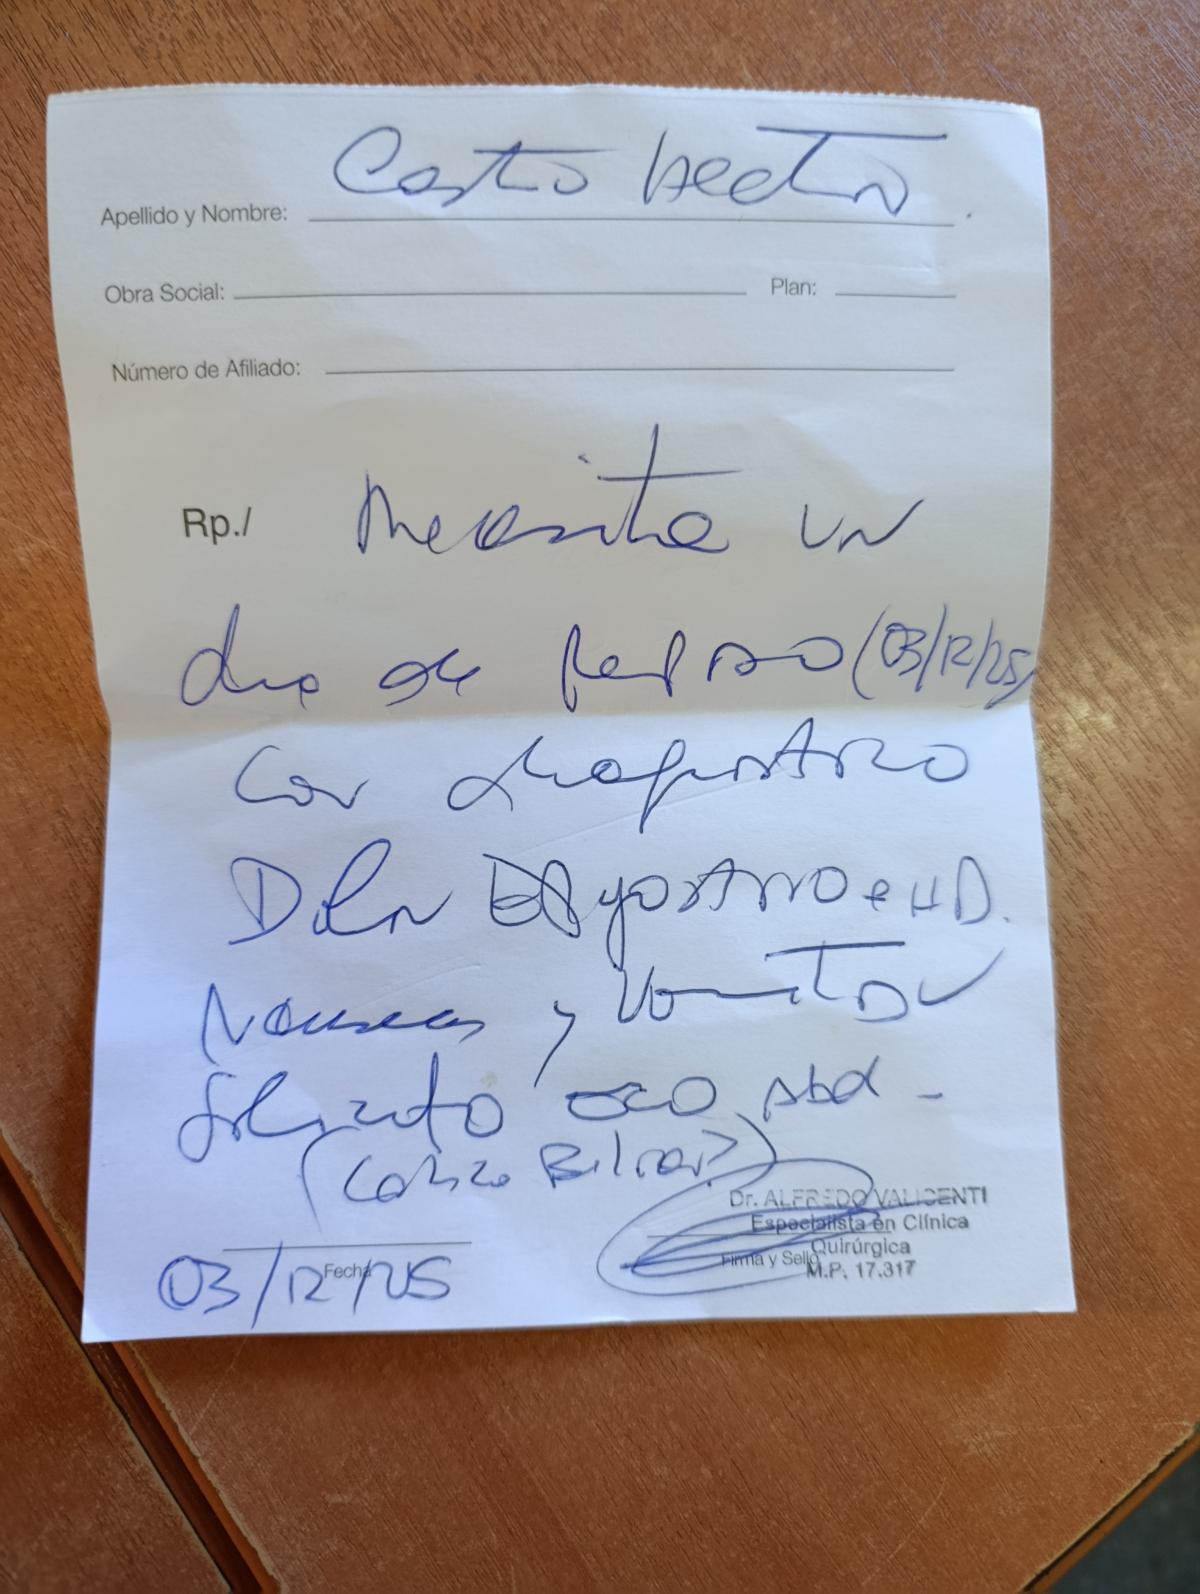 Apellido y Nombre: Casto Hector
Obra Social: Plan:
Número de Afiliado:
Rp./ Necesita un
dia de reposo (03/12/25)
con diagnostico
Dolor Epigastrio e HD.
Nauseas y Vomitos
Solicito eco abd -
(Colico Biliar?)
Dr. ALFREDO VALICENTI
Especialista en Clínica
Quirúrgica
Firma y Sello
M.P. 17.317
Fecha
03/12/25